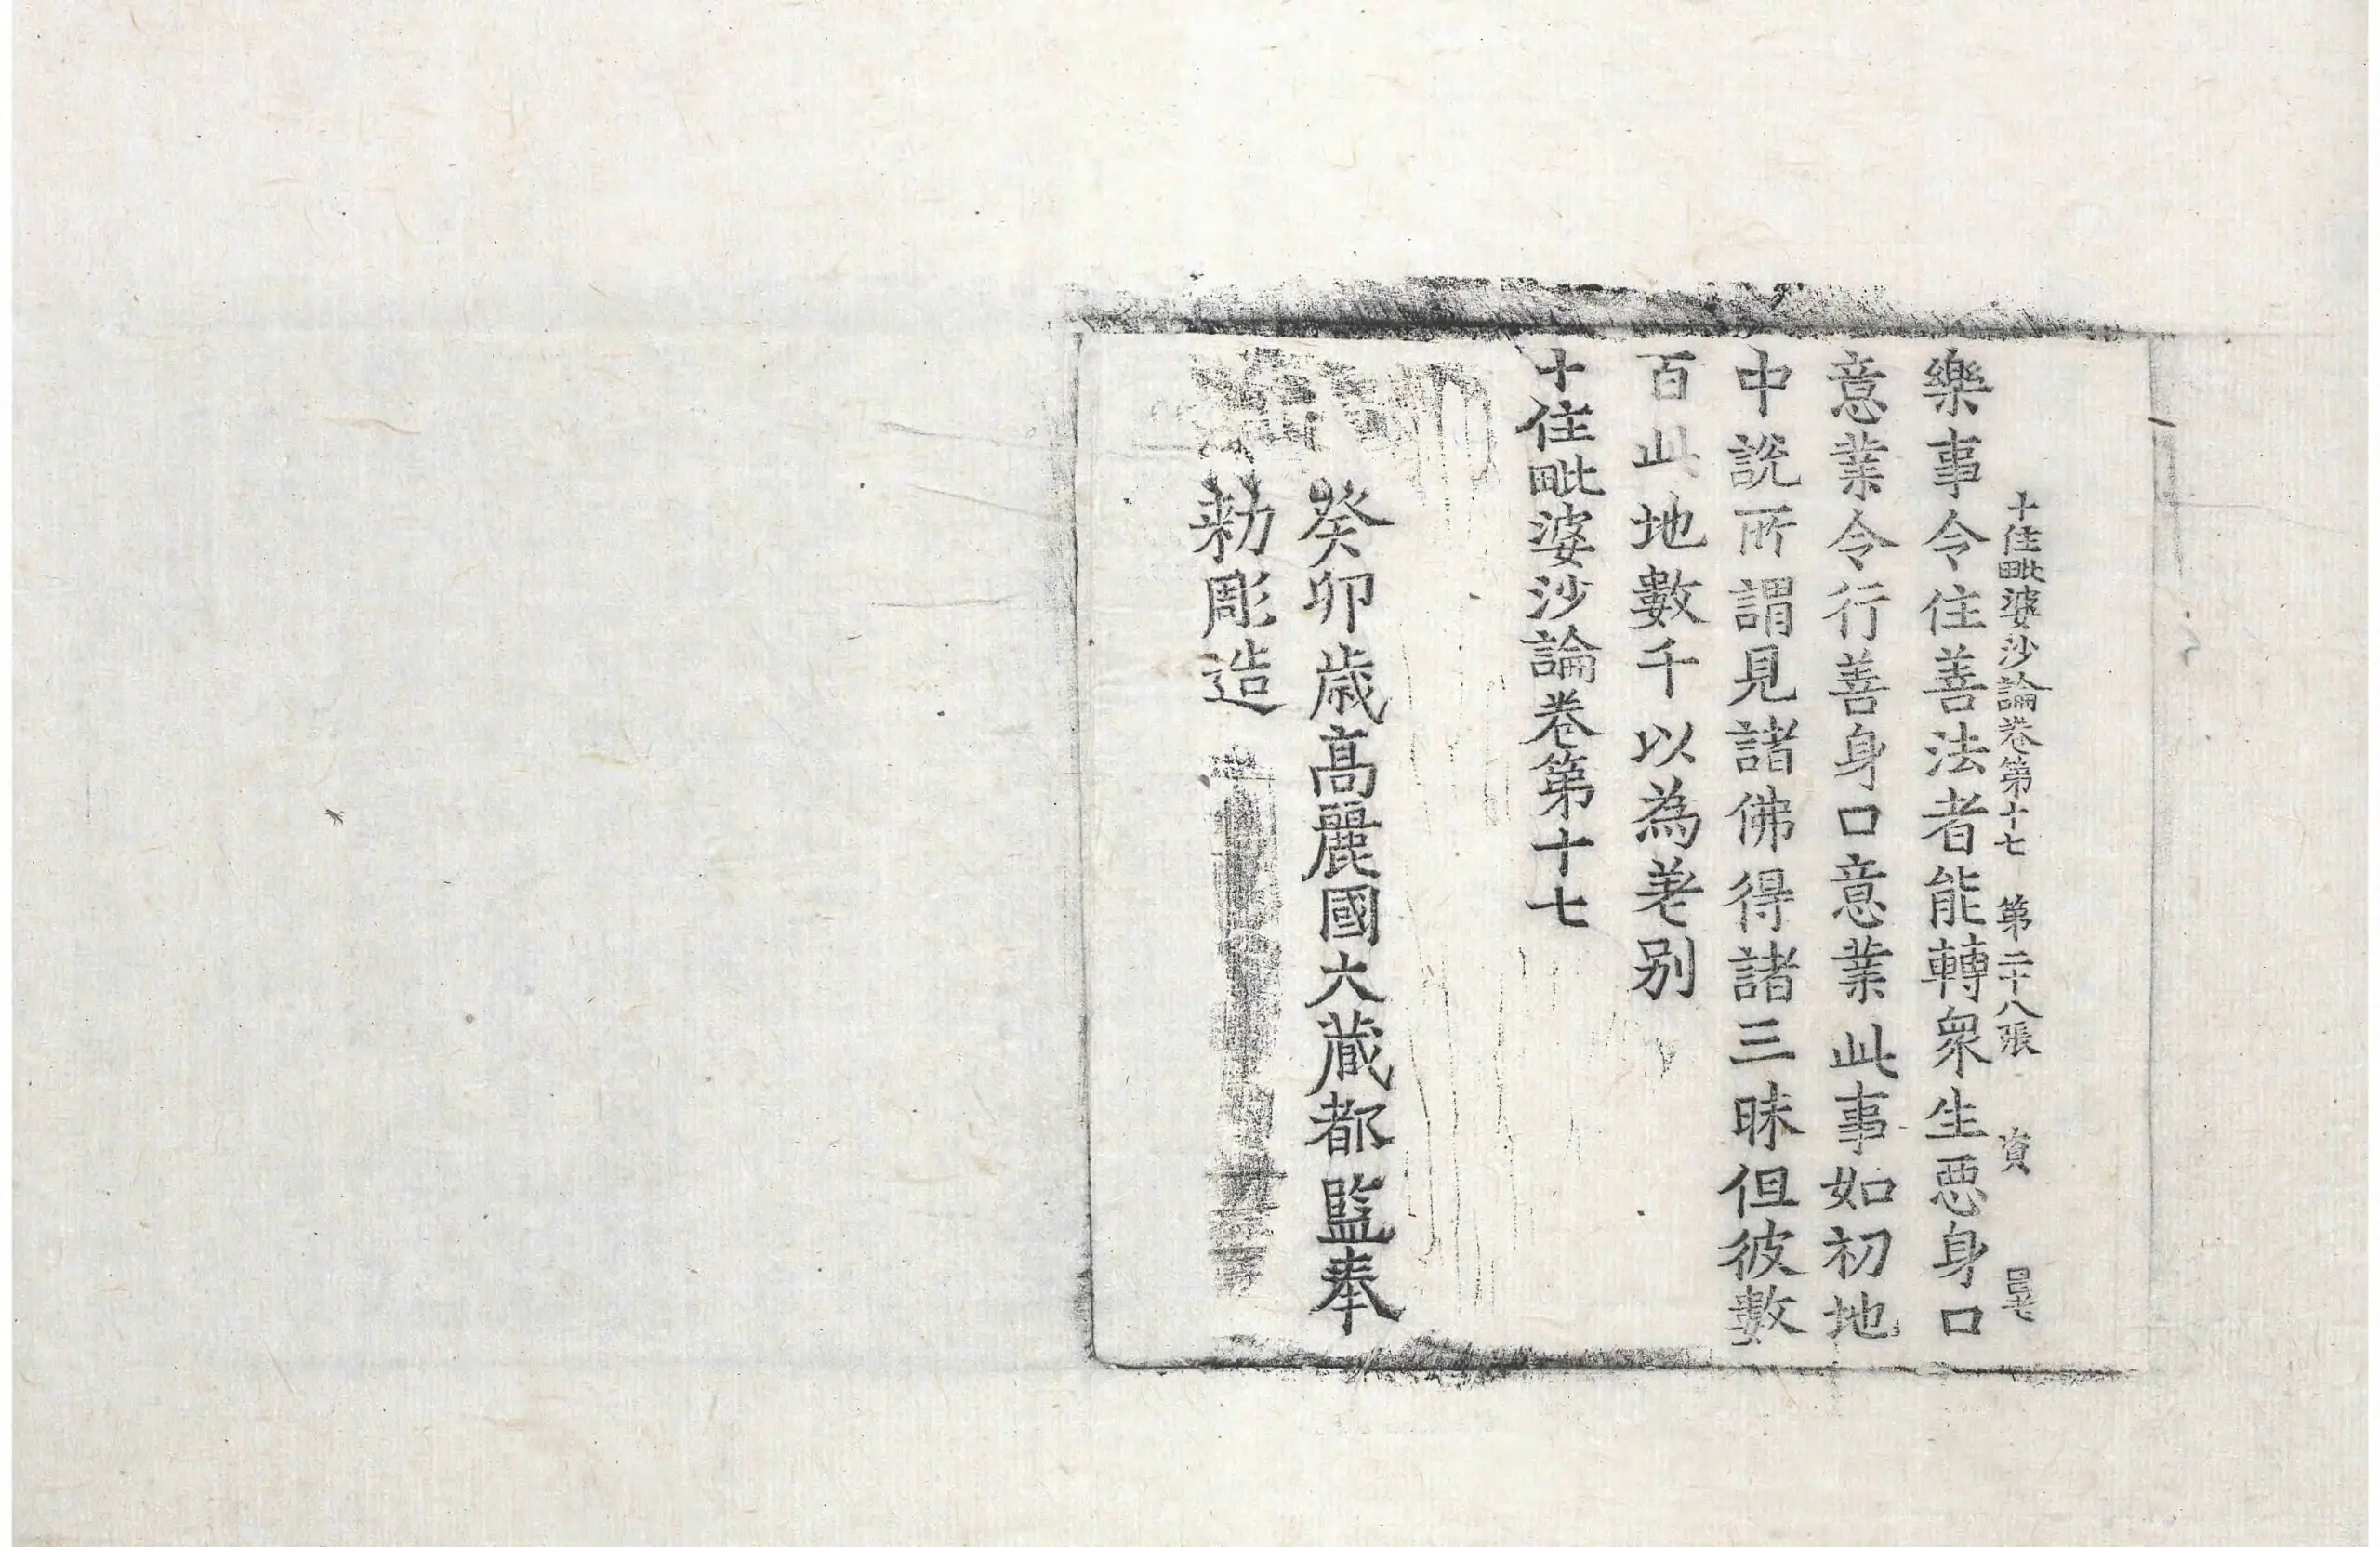 十住毗婆沙論卷第十七 第二十八張 資
樂事令住善法者能轉衆生惡身口
意業令行善身口意業此事如初地
中說所謂見諸佛得諸三昧但彼數
百此地數千以為差别
十住毗婆沙論卷第十七
癸卯歲高麗國大藏都監奉
勑彫造